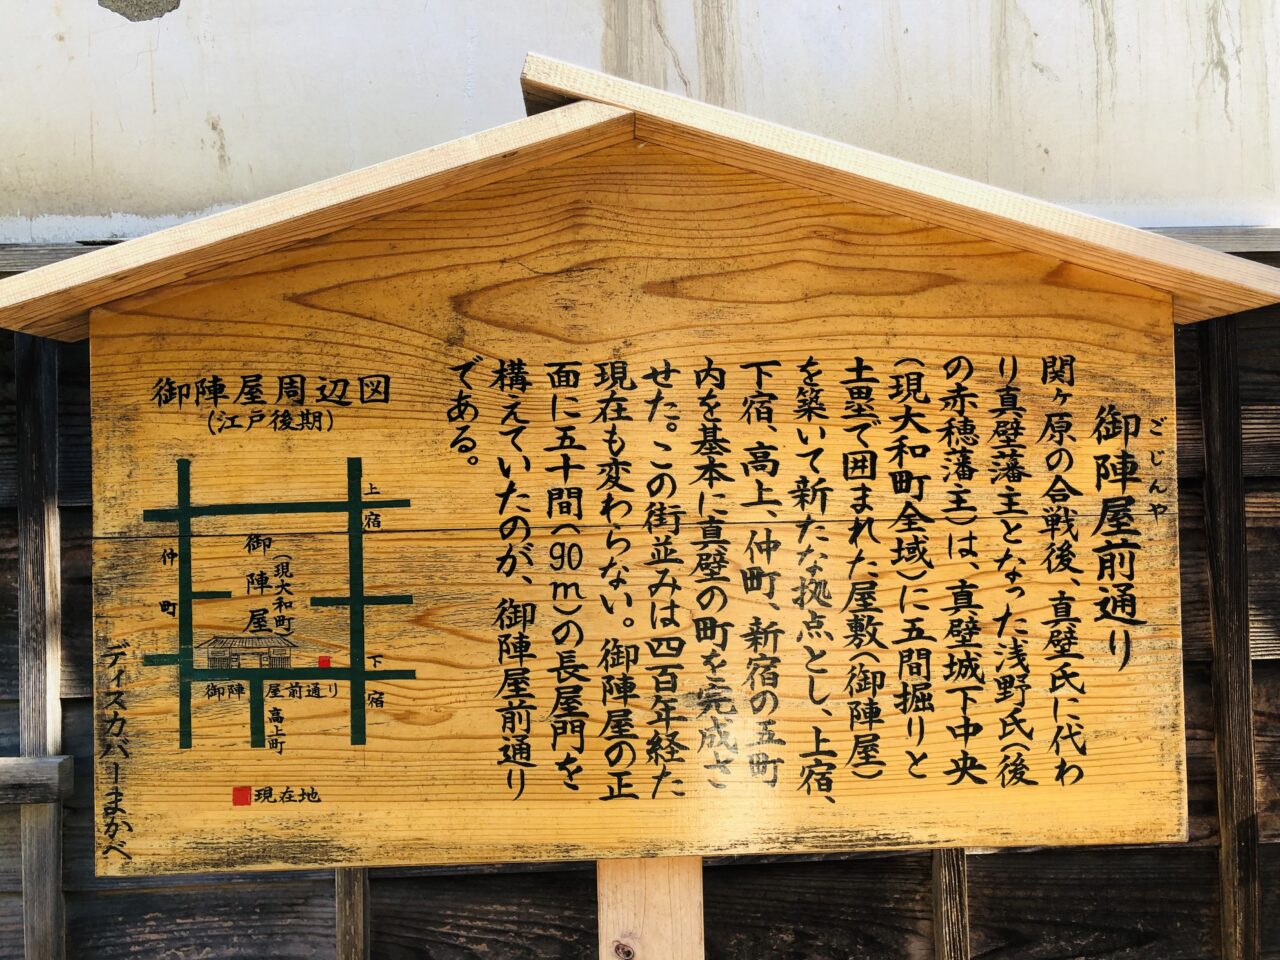 御陣屋前通り
ごじんや
関ヶ原の合戦後、真壁氏に代わ
り真壁藩主となった浅野氏(後
の赤穂藩主)は、真壁城下中央
(現大和町全域)に五間掘りと
土塁で囲まれた屋敷(御陣屋)
を築いて新たな拠点とし、上宿、
下宿、高上、仲町、新宿の五町
内を基本に真壁の町を完成さ
せた。この街並みは四百年経た
現在も変わらない。御陣屋の正
面に五十間(90m)の長屋門を
構えていたのが、御陣屋前通り
である。
御陣屋周辺図
(江戸後期)
上宿
仲町
御陣屋
(現大和町)
下宿
御陣屋前通り
高上町
現在地
ディスカバーまかべ